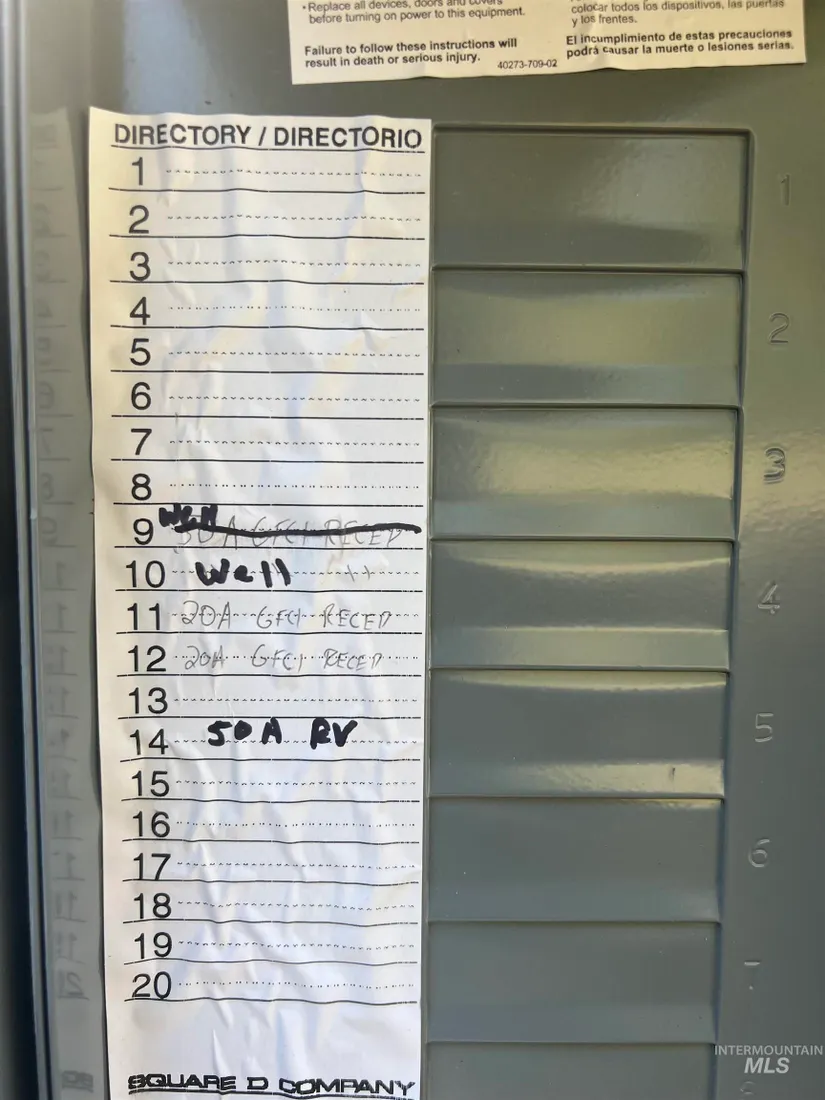 • Replace all devices, doors and covers
before turning on power to this equipment.
Failure to follow these instructions will
result in death or serious injury.
40273-709-02
colocar todos los dispositivos, las puertas
y los frentes.
El incumplimiento de estas precauciones
podrá causar la muerte o lesiones serias.
DIRECTORY / DIRECTORIO
1
2
3
4
5
6
7
8
9 Well 50A GFCI RECEP
10 Well
11 20A GFCI RECEP
12 20A GFCI RECEP
13
14 50A RV
15
16
17
18
19
20
SQUARE D COMPANY
1
2
3
4
5
6
7
INTERMOUNTAIN
MLS